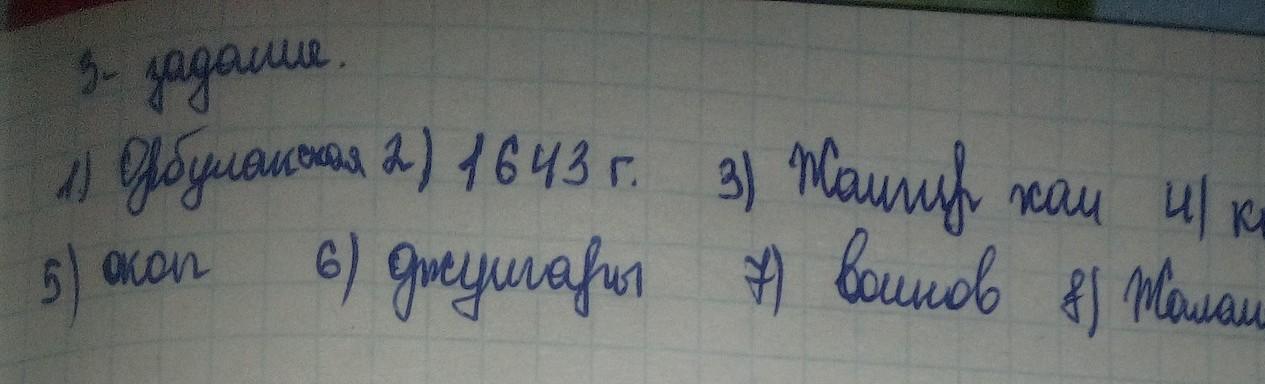 3- задание.
1) Орбулакская 2) 1643 г. 3) Жангир хан 4)
5) окоп 6) джунгары 7) воинов 8)